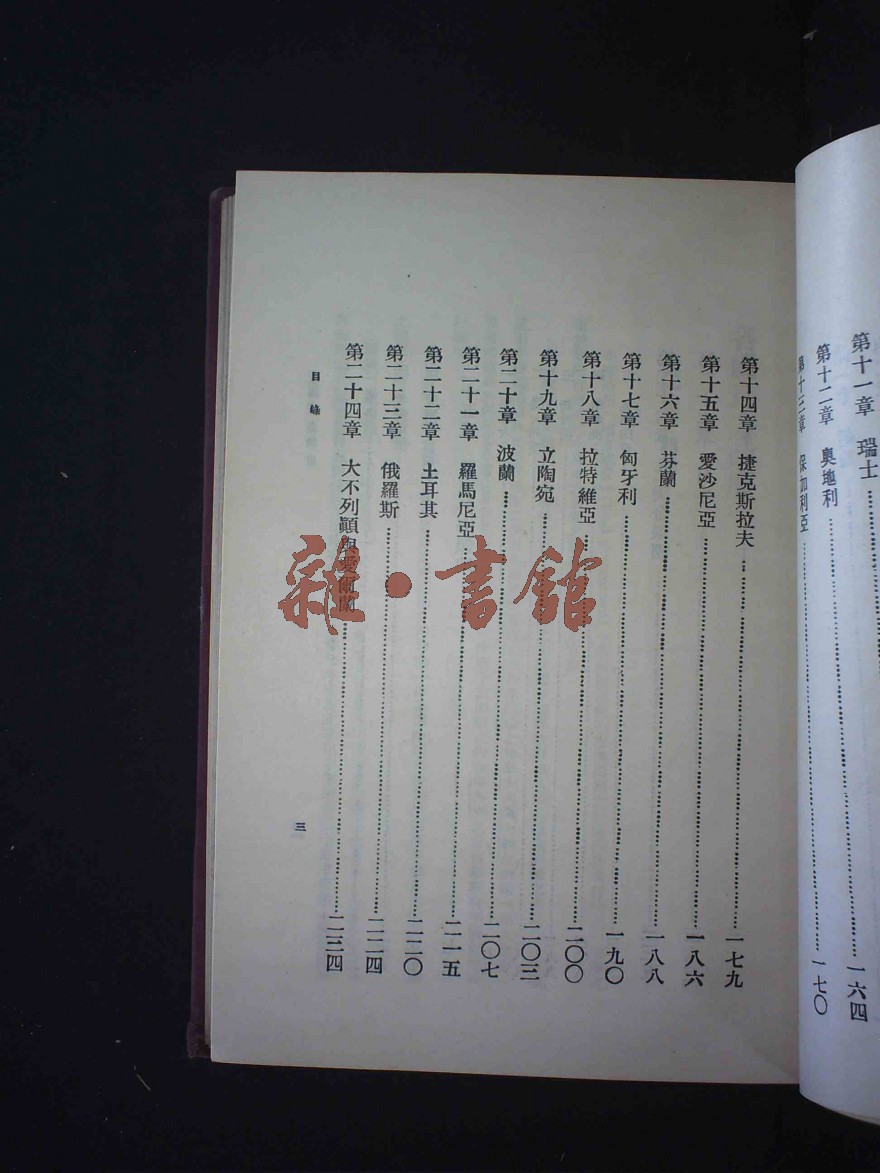 第十一章　瑞士
一六四
第十二章　奧地利
一七〇
第十三章　保加利亞
第十四章　捷克斯拉夫………一七九
第十五章　愛沙尼亞………一八六
第十六章　芬蘭………一八八
第十七章　匈牙利………一九〇
第十八章　拉特維亞………二〇〇
第十九章　立陶宛………二〇三
第二十章　波蘭………二〇七
第二十一章　羅馬尼亞………二一五
第二十二章　土耳其………二二〇
第二十三章　俄羅斯………二二四
第二十四章　大不列顛與愛爾蘭………二三四
目
三
雜·書館